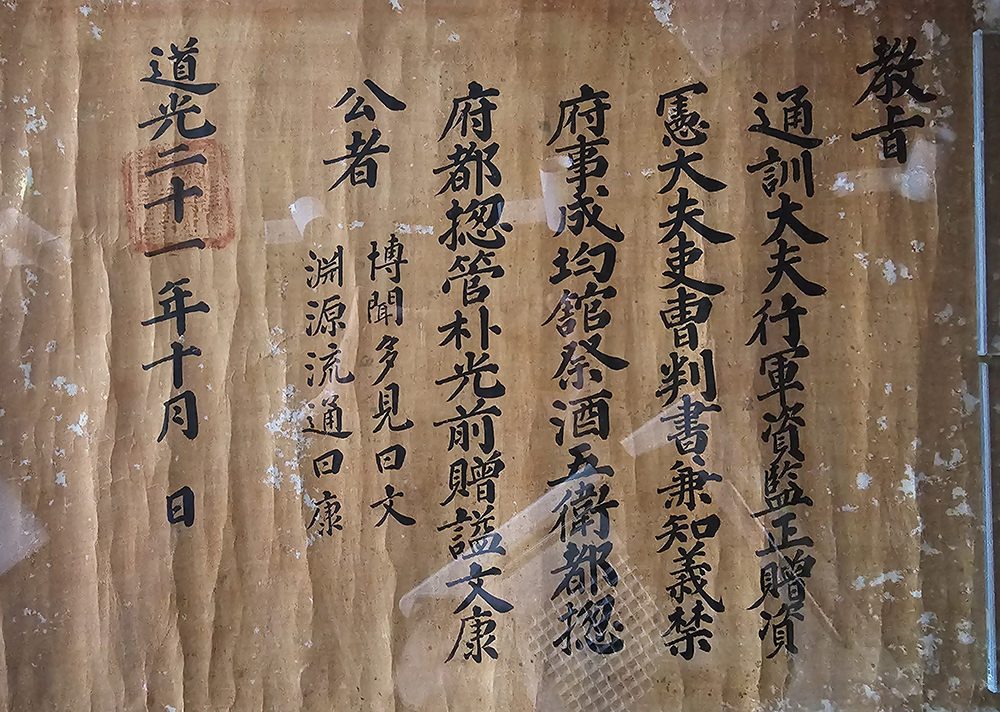 教旨
通訓大夫行軍資監正贈資
憲大夫吏曹判書兼知義禁
府事成均館祭酒五衛都摠
府都摠管朴光前贈諡文康
公者
博聞多見曰文
淵源流通曰康
道光二十一年十月 日